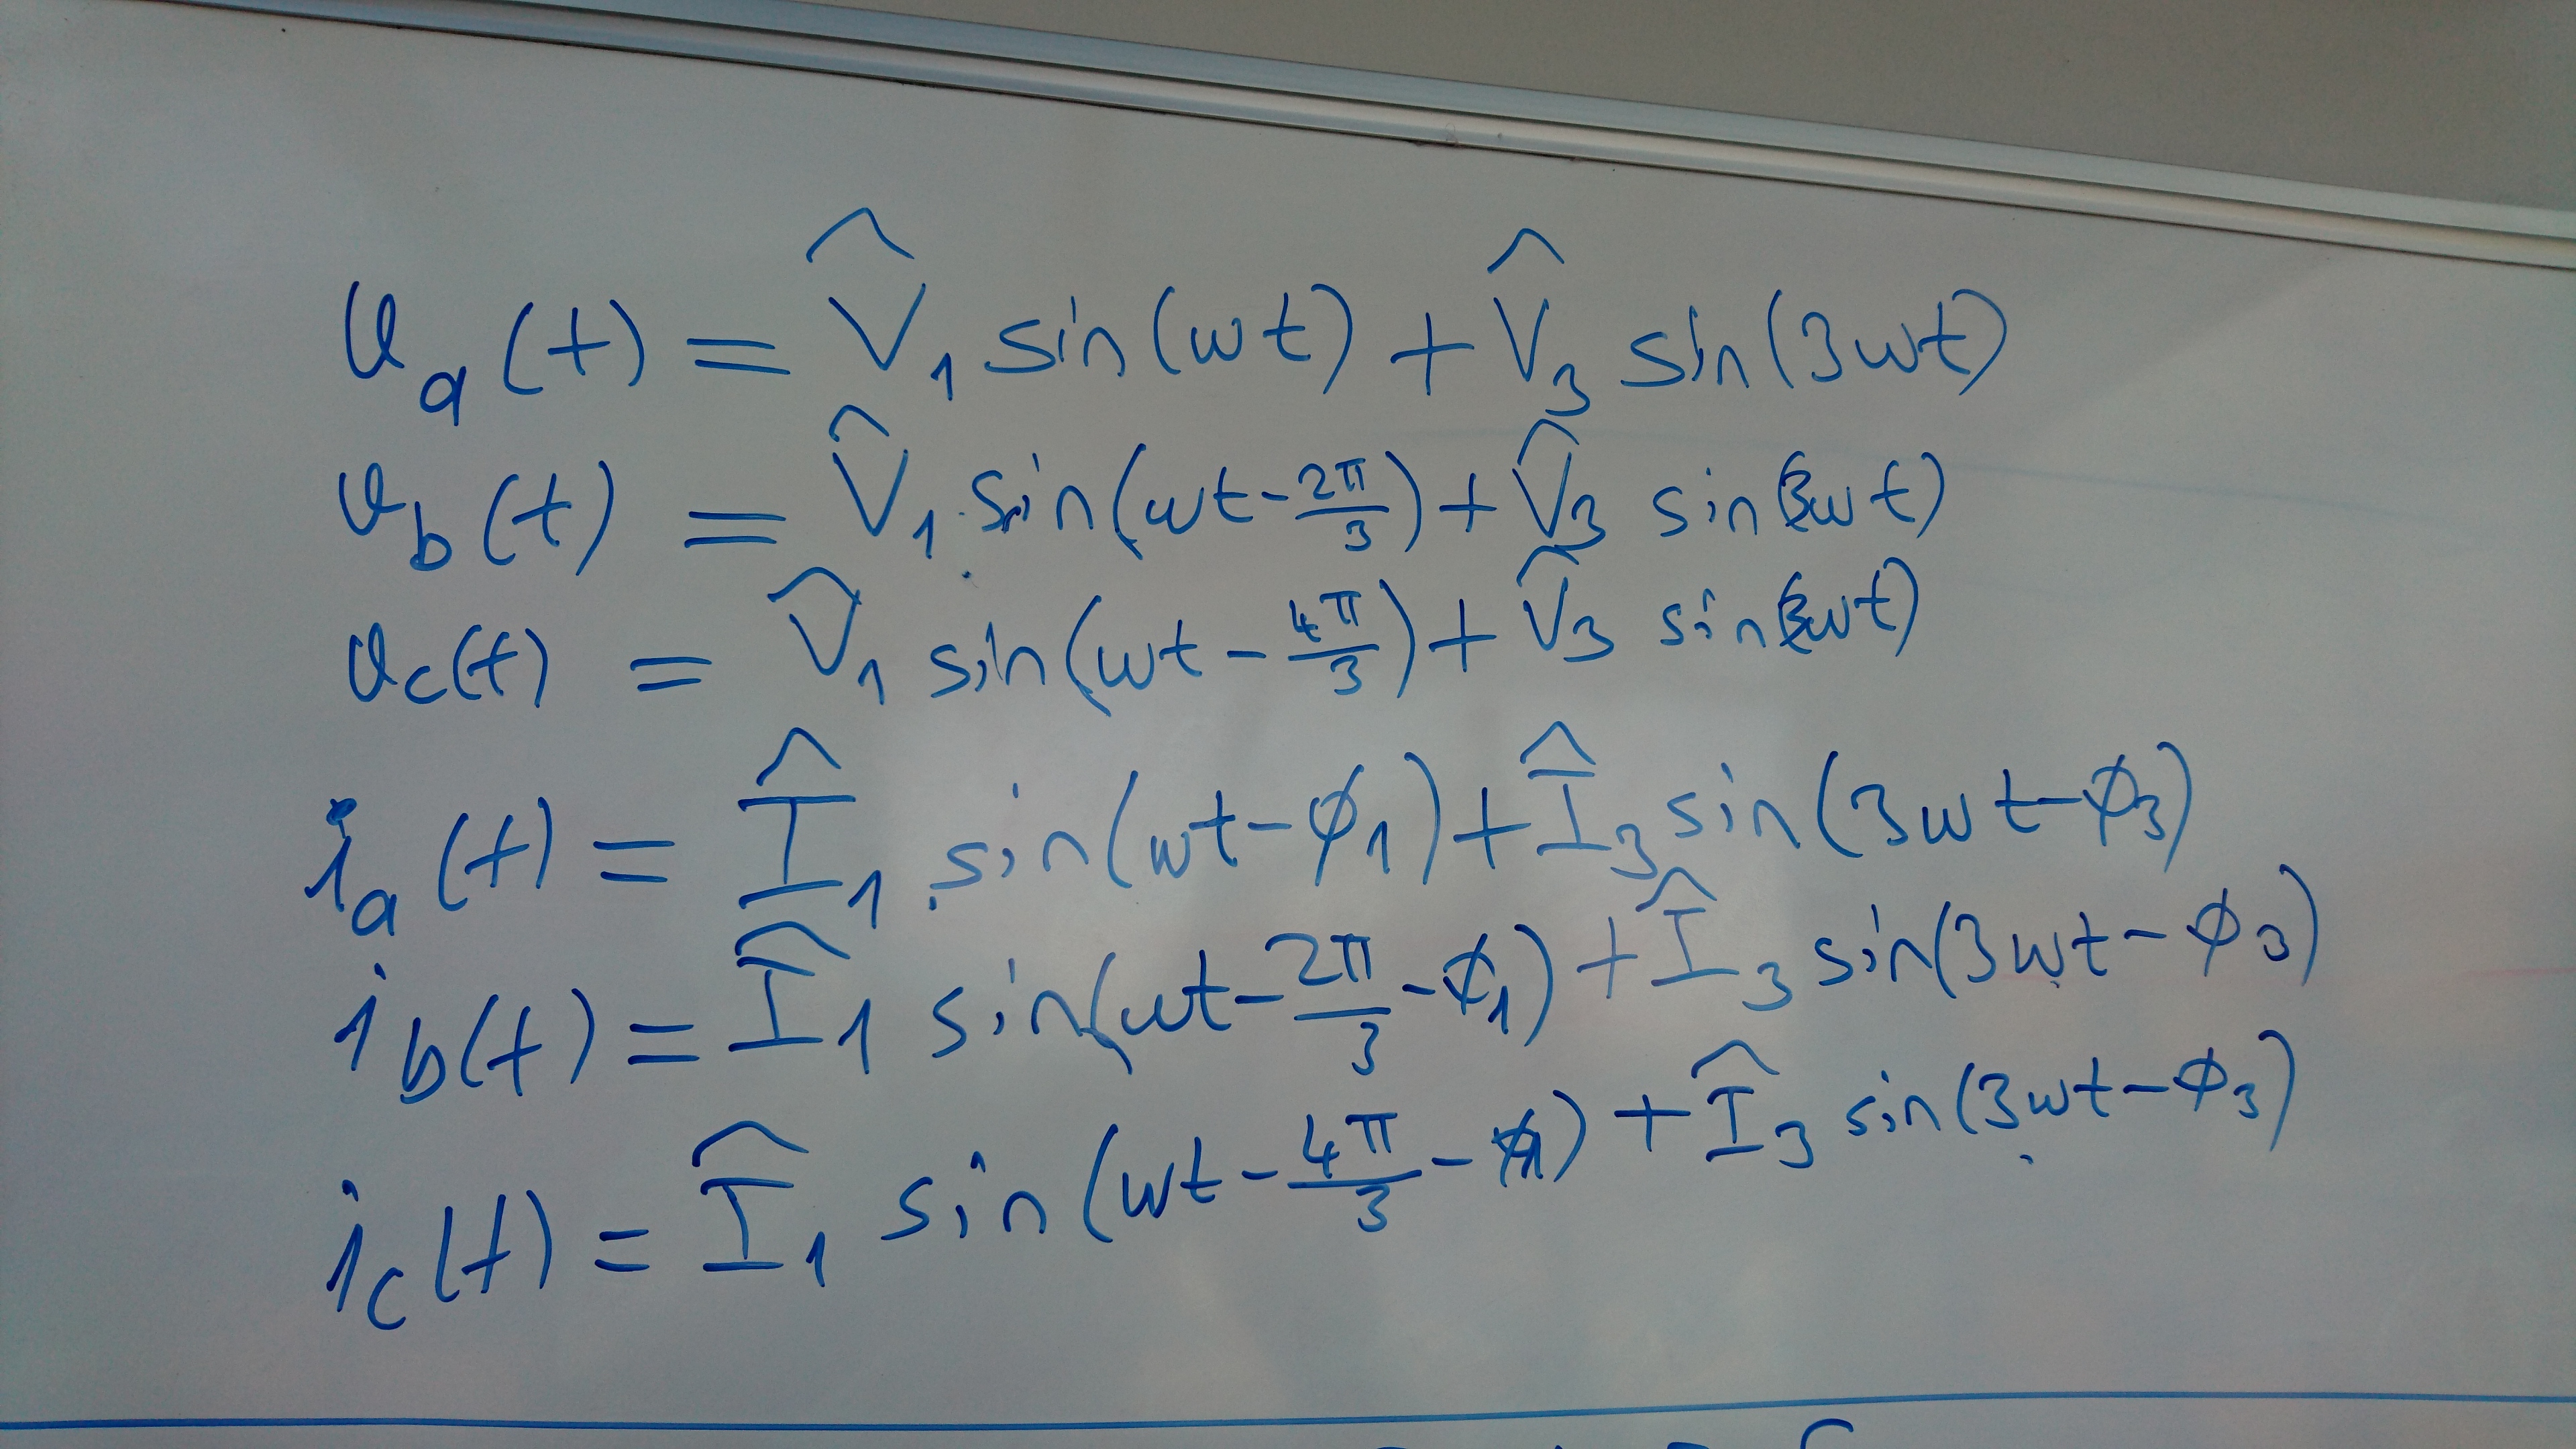 v_a(t) = V̂₁ sin(ωt) + V̂₃ sin(3ωt)
v_b(t) = V̂₁ sin(ωt - 2π/3) + V̂₃ sin(3ωt)
v_c(t) = V̂₁ sin(ωt - 4π/3) + V̂₃ sin(3ωt)
i_a(t) = Î₁ sin(ωt - φ₁) + Î₃ sin(3ωt - φ₃)
i_b(t) = Î₁ sin(ωt - 2π/3 - φ₁) + Î₃ sin(3ωt - φ₃)
i_c(t) = Î₁ sin(ωt - 4π/3 - φ₁) + Î₃ sin(3ωt - φ₃)